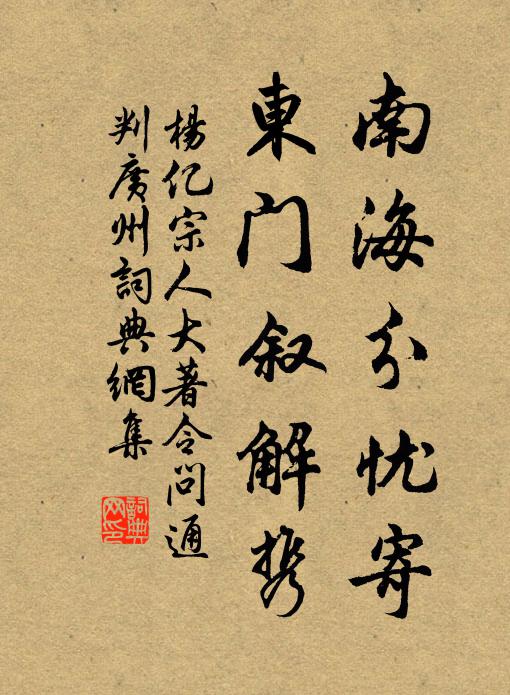 南海分忧寄
東门叙解携
楊亿宗人大著令问通
判廣州詞典網集
詞典
网印